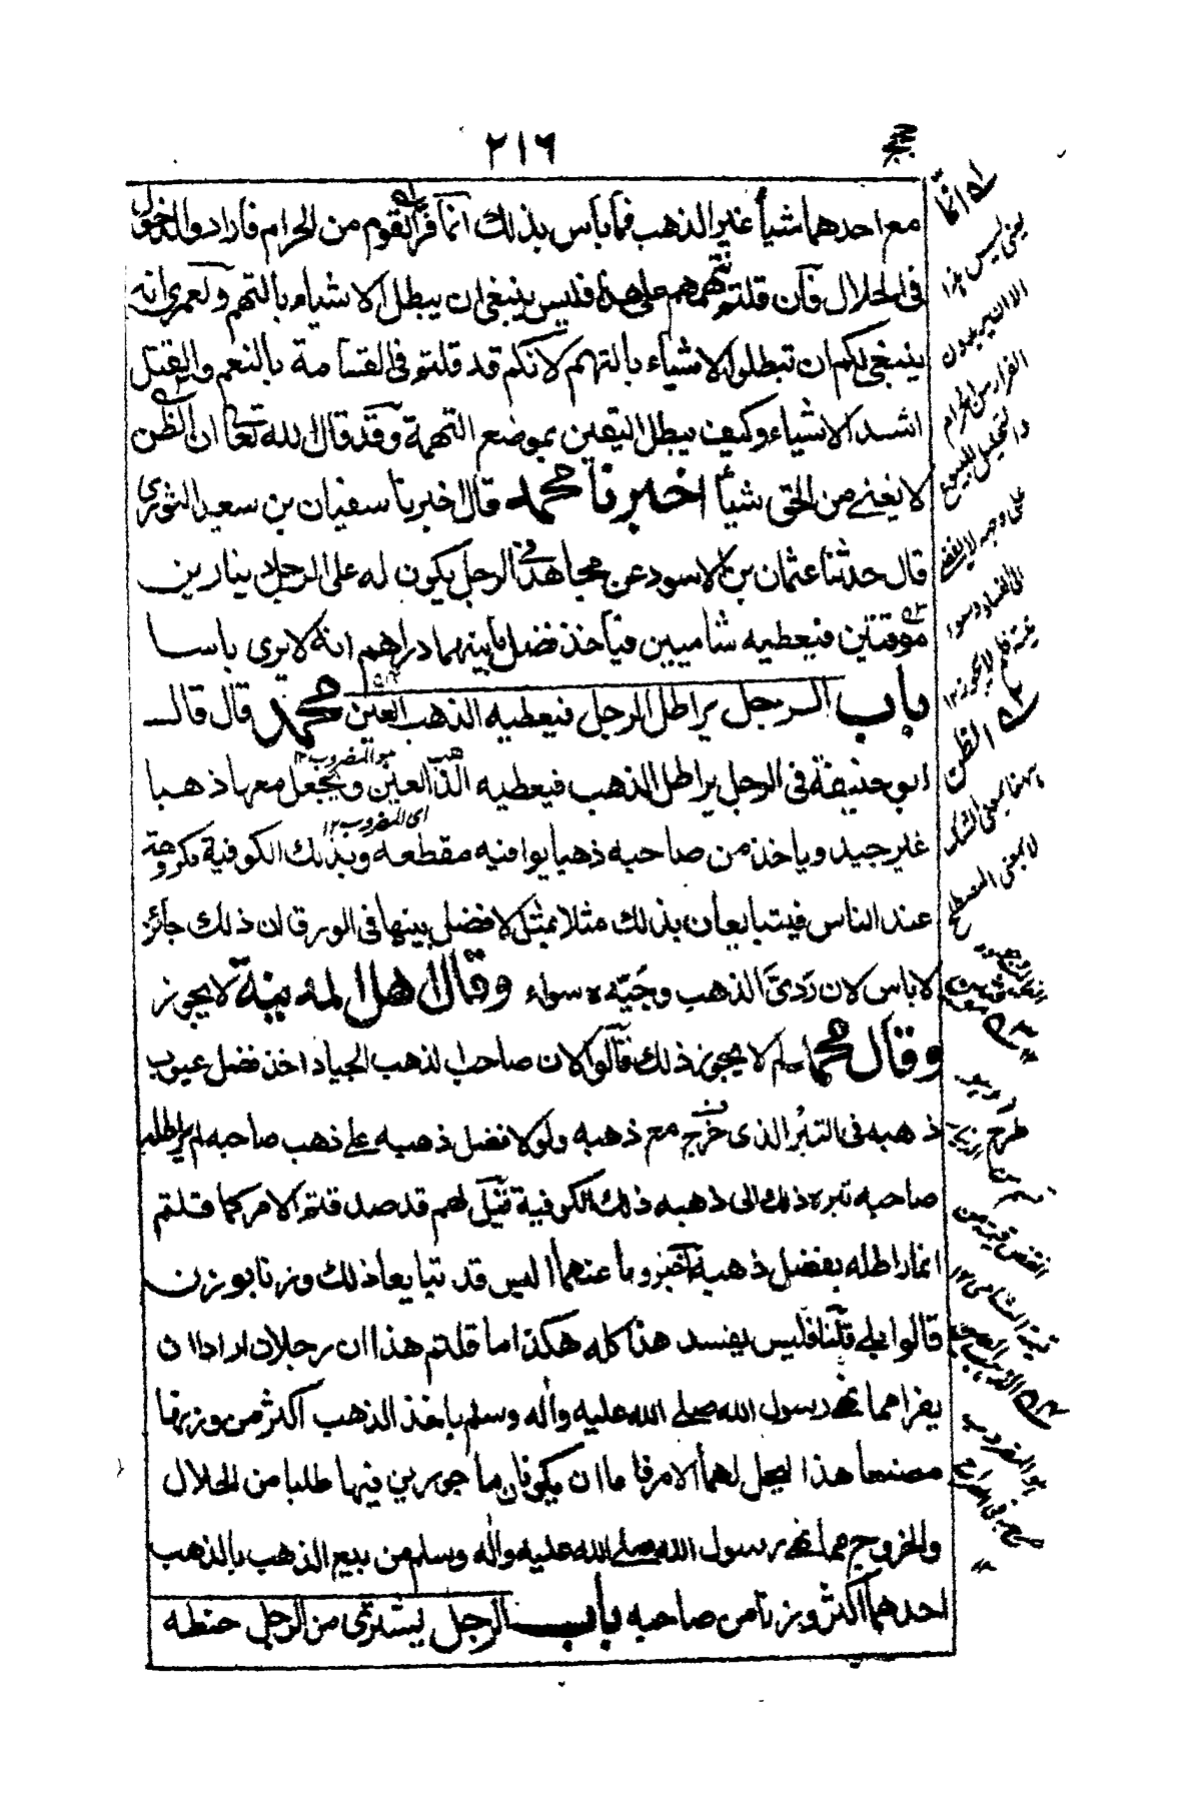 ٢١٦
مع احدهما شيأ غير الذهب فما باس بذلك انما فر القوم من الحرام فارادوا الدخول
فى الحلال فان قلتم نتهمهم على هذا فليس ينبغى ان يبطل الاشياء بالتهم ولعمرى انه
ينبغى لكم ان تبطلوا الاشياء بالتهم لانكم قد قلتم فى القسامة بالتهم والقتل
اشد الاشياء وكيف يبطل اليقين بموضع التهمة وقد قال الله تعا ان الظن
لا يغنى من الحق شيأ اخبرنا محمد قال اخبرنا سفيان بن سعيد الثورى
قال حدثنا عثمان بن الاسود عن مجاهد فى الرجل يكون له على الرجل دينارين
موقتين فيعطيه شاميين فياخذ فضل ما بينهما دراهم انه لا يرى باسا
باب الرجل يراطل الرجل فيعطيه الذهب العين محمد قال قال
ابو حنيفة فى الرجل يراطل الذهب فيعطيه الذهب العين ويجعل معها ذهبا
غير جيد وياخذ من صاحبه ذهبا يوافيه مقطعه وبذلك الكوفية مكروهة
عند الناس فيتبايعان بذلك مثلا بمثل لا فضل بينها فى الورق ان ذلك جائز
لا باس لان ردى الذهب وجيده سواء وقال اهل المدينة لا يجوز
وقال محمد لم لا يجوز ذلك قالوا لان صاحب الذهب الجياد اخذ فضل عيوب
ذهبه فى التبر الذى خرج مع ذهبه ولولا فضل ذهبه على ذهب صاحبه لم يراطله
صاحبه تبره ذلك الى ذهبه ذلك الكوفية قيل لهم قد صدقتم الامر كما قلتم
انما راطله بفضل ذهبه وما عندهما اليس قد تبايعا ذلك وزنا بوزن
قالوا بلى قلنا فليس يفسد هذا كله هكذا اما قلتم هذا ان رجلان ارادا ان
يفرا مما نهى رسول الله صلى الله عليه واله وسلم باخذ الذهب اكثر من وزنها
مصنعا هذا ليحل لهما الامر فاما ان يكونان ماجورين فيها طلبا من الحلال
والخروج مما نهى رسول الله صلى الله عليه واله وسلم من بيع الذهب بالذهب
احدهما اكثر وزنا من صاحبه باب الرجل يشترى من الرجل حنطه
انما
يعنى ليس هذا
الا ان يريدون
الفرار من الحرام
الظن
ههنا بمعنى الشك
لا بمعنى المصطلح